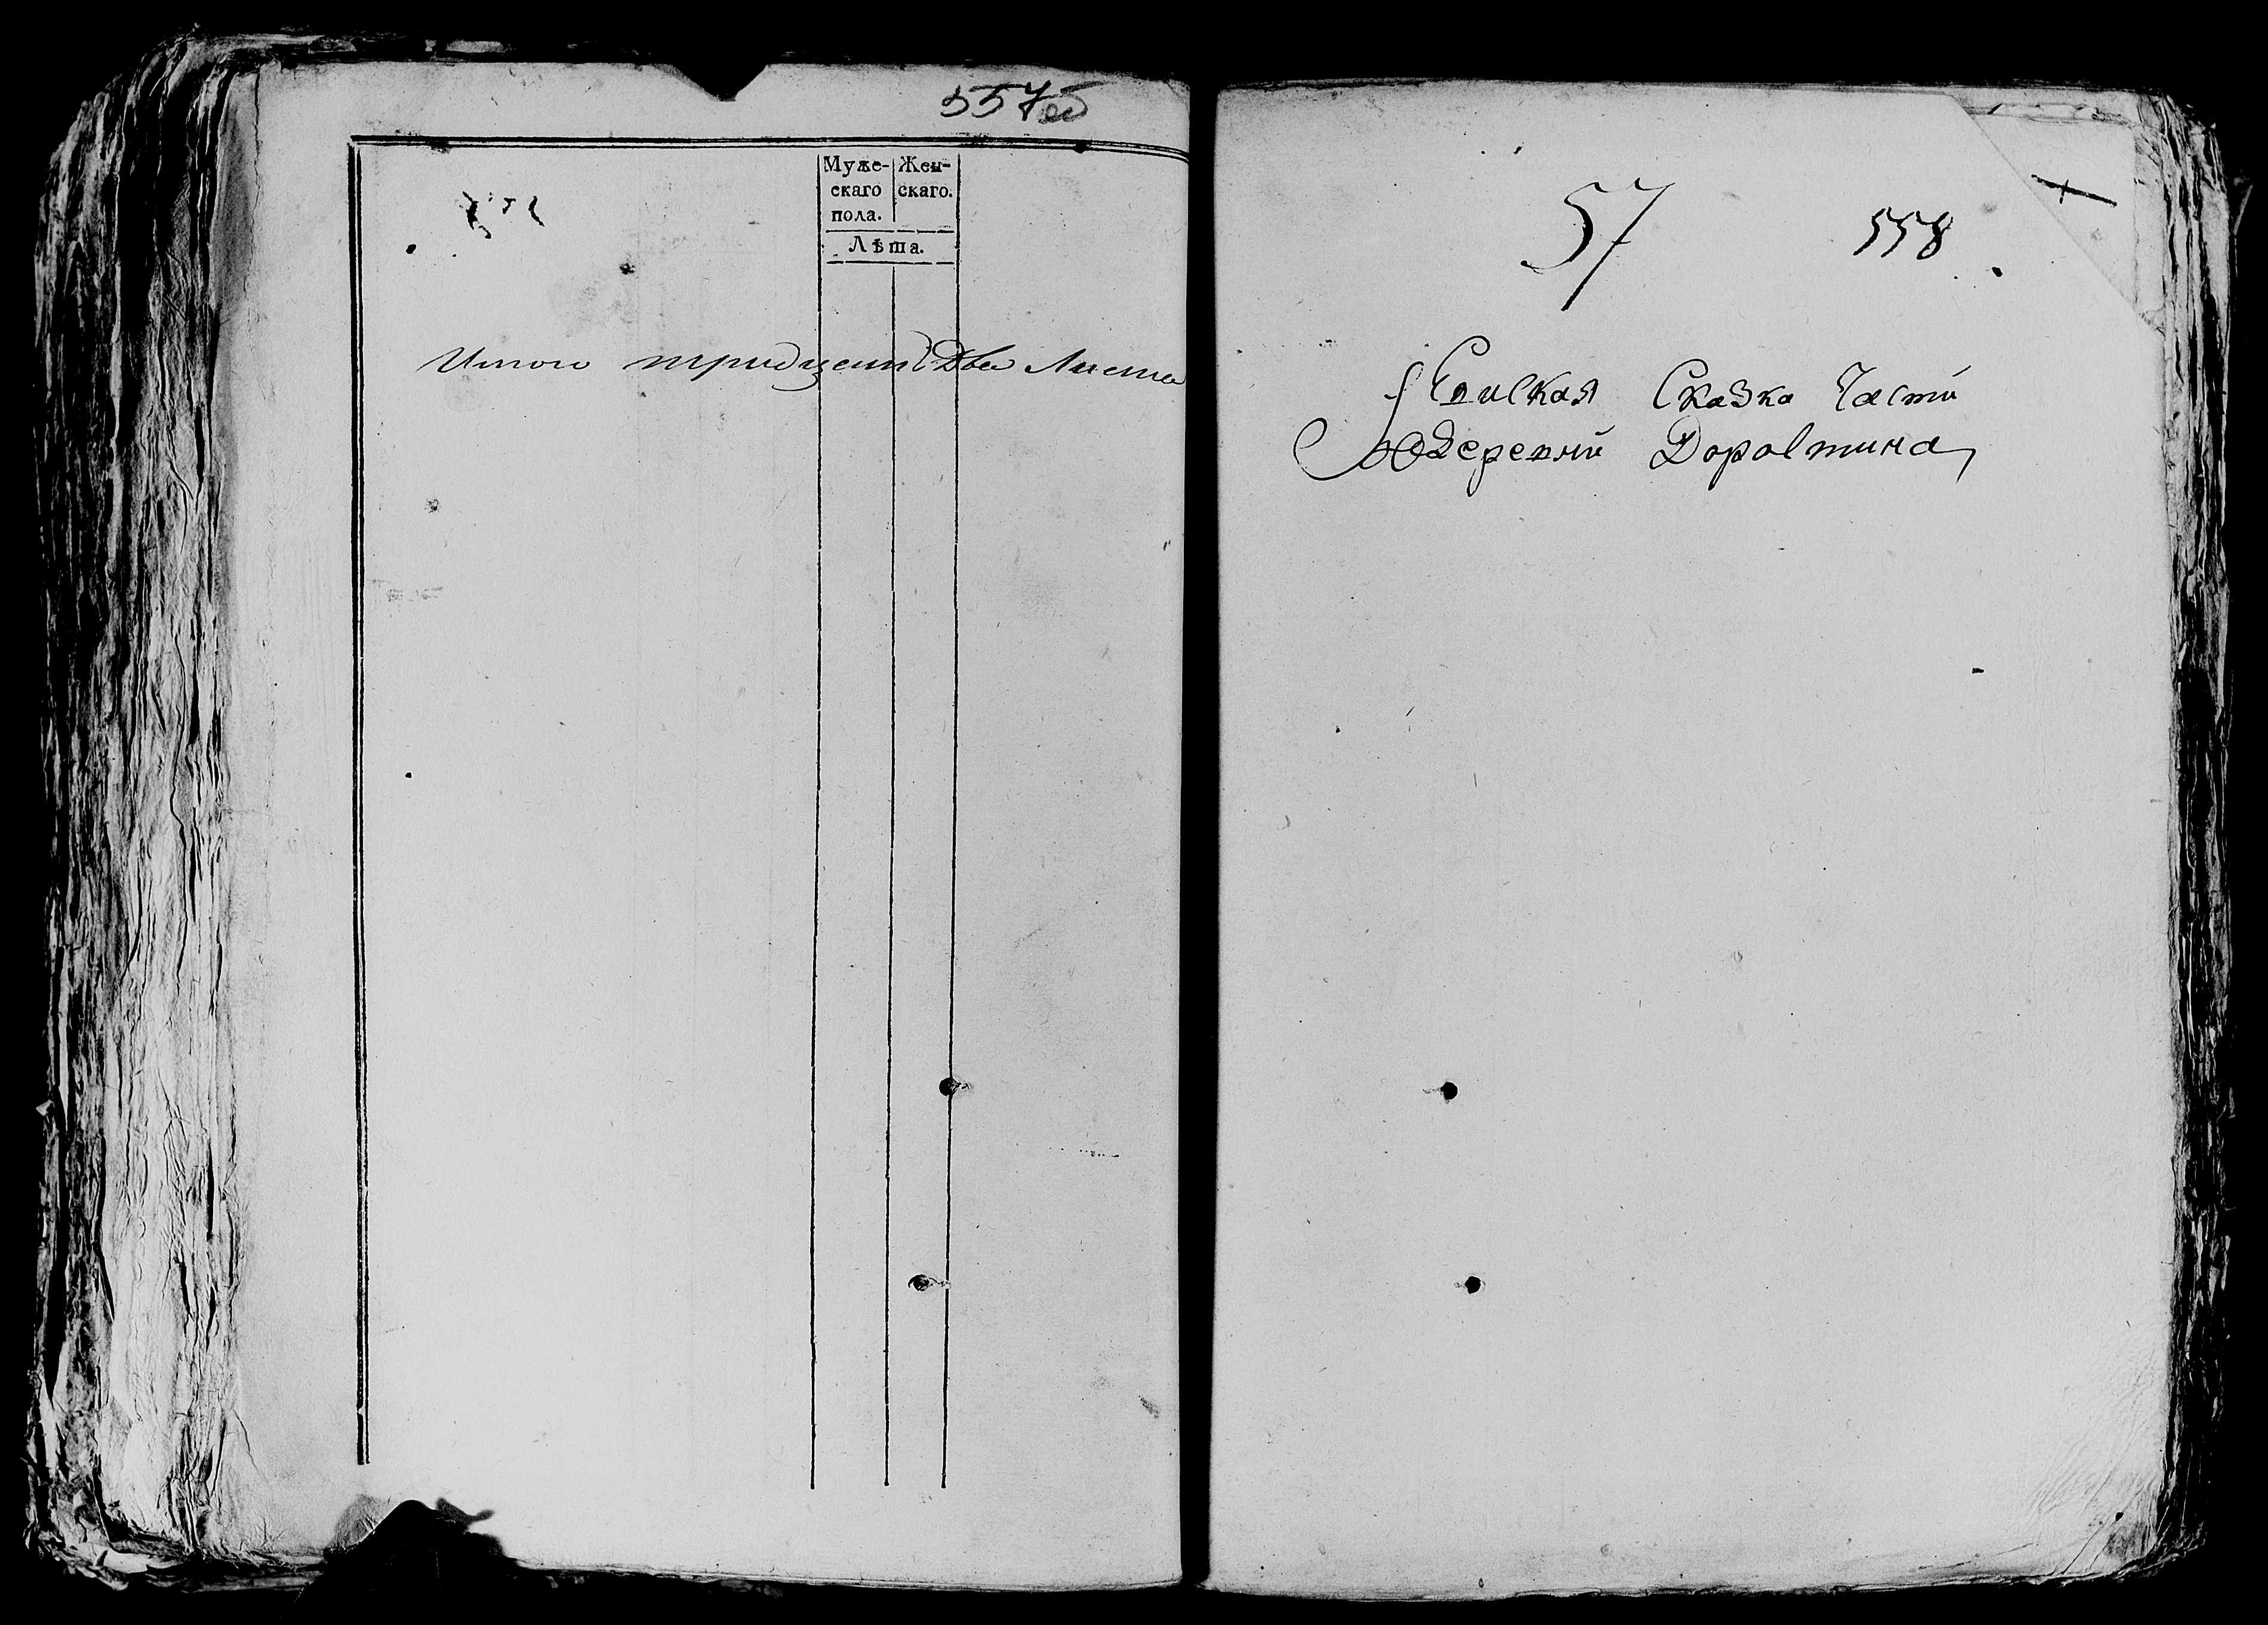 557об
Муже-
скаго
пола.
Жен-
скаго.
Лѣта.
Итого тридцать два листа
57
558
Сказка Части
Деревни Доровтина